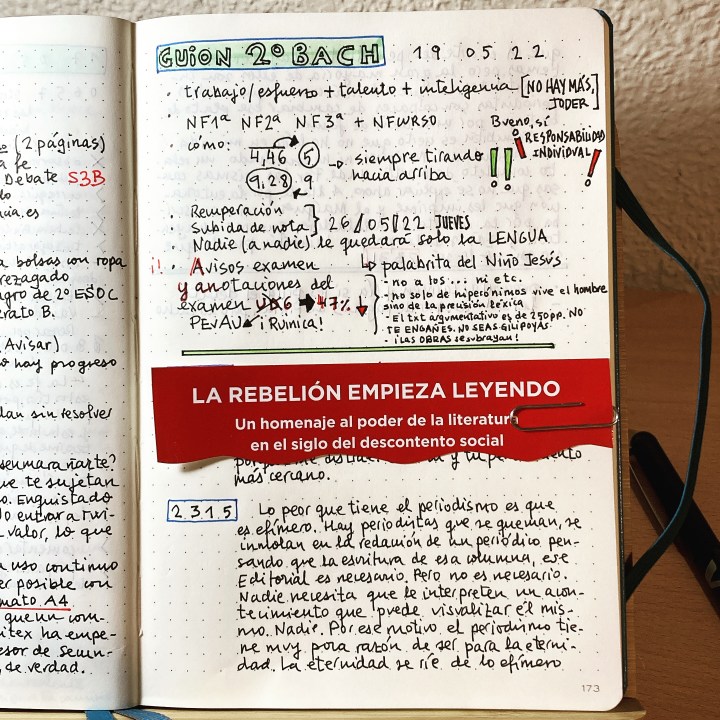 (2 páginas)
a fe
Debate S3B
do
a bolsas con ropa
rezagado
agro de 2º ESO C
erato B.
(Avisar)
o hay progreso
dan sin resolver
que te sujetan
o. Enquistado
valor, lo que
a uso continuo
er posible con
mato A4
que un com-
itex ha empe-
esor de segun-
, de verdad.
GUION 2º BACH 19 05 22
· trabajo/esfuerzo + talento + inteligencia [NO HAY MÁS, JODER]
· NF1ª NF2ª NF3ª + NFCURSO Bueno, sí
¡RESPONSABILIDAD INDIVIDUAL!
· cómo: 4,46 5
9,28 9
→ siempre tirando
hacia arriba !!
· Recuperación
Subida de nota } 26/05/22 JUEVES
· Nadie (a nadie) le quedará solo la LENGUA
↳ palabrita del Niño Jesús
¡! · Avisos examen
y anotaciones del
examen UD6 → 47% ↓
PEvAU ¡Ruinica!
- no a los... ni etc.
- no solo de hiperónimos vive el hombre
sino de la precisión léxica
- El txt argumentativo es de 250pp. NO
TE ENGAÑES. NO SEAS GILIPOYAS
- ¡LAS OBRAS se subrayan!
LA REBELIÓN EMPIEZA LEYENDO
Un homenaje al poder de la literatura
en el siglo del descontento social
más cercano.
2315 Lo peor que tiene el periodismo es que
es efímero. Hay periodistas que se queman, se
inmolan en la redacción de un periódico pen-
sando que la escritura de esa columna, ese
Editorial es necesario. Pero no es necesario.
Nadie necesita que le interpreten un acon-
tecimiento que puede visualizar él mis-
mo. Nadie. Por ese motivo el periodismo tie-
ne muy poca razón de ser para la eterni-
dad. La eternidad se ríe de lo efímero
173